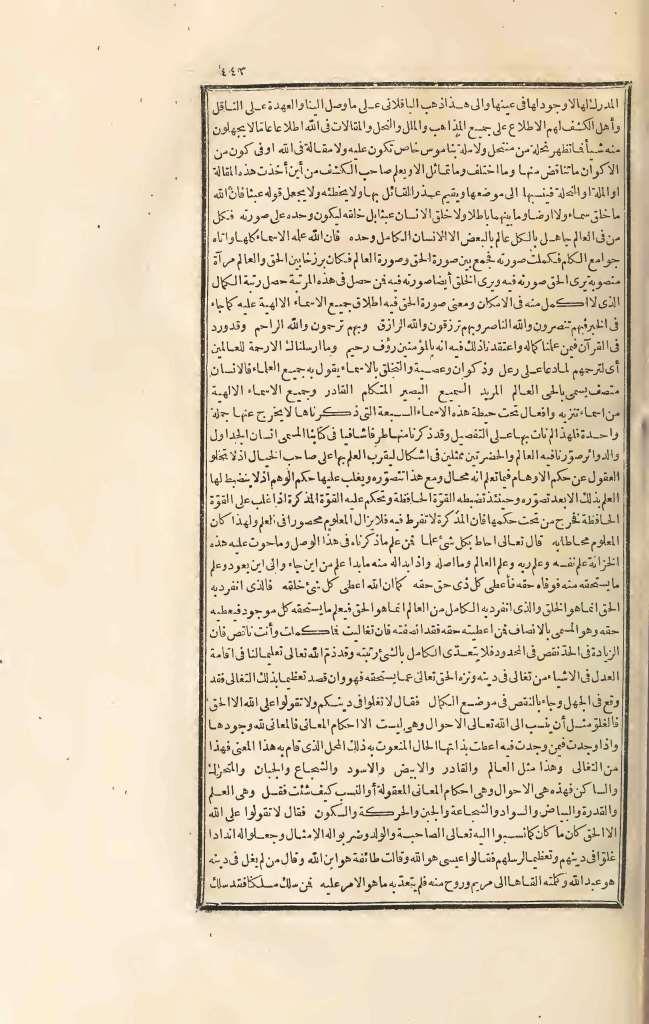 ٤٤٣
المدركة لها لا وجود لها فى عينها والى هذا ذهب الباقلانى على ما وصل الينا والعهدة على الناقل
وأهل الكشف لهم الاطلاع على جميع المذاهب والملل والنحل والمقالات فى الله اطلاعا عاما لا يجهلون
منه شيأ فما تظهر نحلة من منتحل ولا ملة بناموس خاص تكون عليه ولا مقالة فى الله او فى كون من
الاكوان ما تناقض منها وما اختلف وما تماثل الا ويعلم صاحب الكشف من أين أخذت هذه المقالة
او الملة او النحلة فينسبها الى موضعها ويقيم عذر القائل بها ولا يخطئه ولا يجعل قوله عبثا فان الله
ما خلق سماء ولا ارضا وما بينهما باطلا ولا خلق الانسان عبثا بل خلقه ليكون وحده على صورته فكل
من فى العالم جاهل بالكل عالم بالبعض الا الانسان الكامل وحده فان الله علمه الاسماء كلها واتاه
جوامع الكلم فكملت صورته فجمع بين صورة الحق وصورة العالم فكان برزخا بين الحق والعالم مرآة
منصوبة يرى الحق صورته فيه ويرى الخلق أيضا صورته فيه فمن حصل فى هذه المرتبة حصل رتبة الكمال
الذى لا اكمل منه فى الامكان ومعنى صورة الحق فيه اطلاق جميع الاسماء الالهية عليه كما جاء
فى الخبر فبهم تنصرون والله الناصر وبهم ترزقون والله الرازق وبهم ترحمون والله الراحم وقد ورد
فى القرآن فيمن علمنا كماله واعتقدنا ذلك فيه انه بالمؤمنين رؤف رحيم وما ارسلناك الا رحمة للعالمين
أى لترحمهم لما دعا على رعل وذكوان وعصية والتخلق بالاسماء يقول به جميع العلماء فالانسان
متصف يسمى بالحى العالم المريد السميع البصير المتكلم القادر وجميع الاسماء الالهية
من اسماء تنزيه وافعال تحت حيطة هذه الاسماء السبعة التى ذكرناها لا يخرج عنها جملة
واحدة فلهذا لم نأت بها على التفصيل وقد ذكرنا منها طرفا شافيا فى كتابنا المسمى انشاء الجداول
والدوائر صورنا فيه العالم والحضرتين ممثلين فى اشكال ليقرب العلم بها على صاحب الخيال اذ لا يخلو
العقول عن حكم الاوهام فيما تعلم انه محال ومع هذا تتصوره ويغلب عليها حكم الوهم اذ لا ينضبط لها
العلم بذلك الا بعد تصوره وحينئذ تضبطه القوة الحافظة وتحكم عليه القوة المذكرة اذا غلب على القوة
الحافظة فخرج من تحت حكمها فان المذكرة لا تفرط فيه فلا يزال المعلوم محصورا فى العلم ولهذا كان
المعلوم محاطا به قال تعالى احاط بكل شئ علما فمن علم ما ذكرناه فى هذا الوصل وما حوت عليه هذه
الخزانة علم نفسه وعلم ربه وعلم العالم وما اصله واذا بدا له منه ما بدا علم من اين جاء والى اين يعود وعلم
ما يستحقه منه فوفاه حقه فأعطى كل ذى حق حقه كما ان الله اعطى كل شئ خلقه فالذى انفرد به
الحق انما هو الخلق والذى انفرد به الكامل من العالم انما هو الحق فيعلم ما يستحقه كل موجود فيعطيه
حقه وهو المسمى بالانصاف فمن اعطيته حقه فقد انصفته فان تغاليت فما كملت وأنت ناقص فان
الزيادة فى الحد نقص فى المحدود فلا يتعدى الكامل بالشئ رتبته وقد ذم الله تعالى تعليما لنا فى اقامة
العدل فى الاشياء من تغالى فى دينه ونزه الحق تعالى عما يستحقه فهو وان قصد تعظيما بذلك التغالى فقد
وقع فى الجهل وجاء بالنقص فى موضع الكمال فقال لا تغلوا فى دينكم ولا تقولوا على الله الا الحق
فالغلو مثل أن ينسب الى الله تعالى الاحوال وهى ليست الا احكام المعانى فالمعانى لله وجودها
واذا وجدت فيمن وجدت فيه اعطت بذاتها الحال المنعوت به ذلك المحل الذى قام به هذا المعنى فهذا
من التغالى وهذا مثل العالم والقادر والابيض والاسود والشجاع والجبان والمتحرك
والساكن فهذه هى الاحوال وهى احكام المعانى المعقولة أو النسب كيف شئت فقل وهى العلم
والقدرة والبياض والسواد والشجاعة والجبن والحركة والسكون فقال لا تقولوا على الله
الا الحق كان ما كان كما نسبوا اليه تعالى الصاحبة والولد وضربوا له الامثال وجعلوا له اندادا
غلوا فى دينهم وتعظيما لرسلهم فقالوا عيسى هو الله وقالت طائفة هو ابن الله وقال من لم يغل فى دينه
هو عبد الله وكلمته القاها الى مريم وروح منه فلم يتعد به ما هو الامر عليه فمن سلك مسلكنا فقد سلك